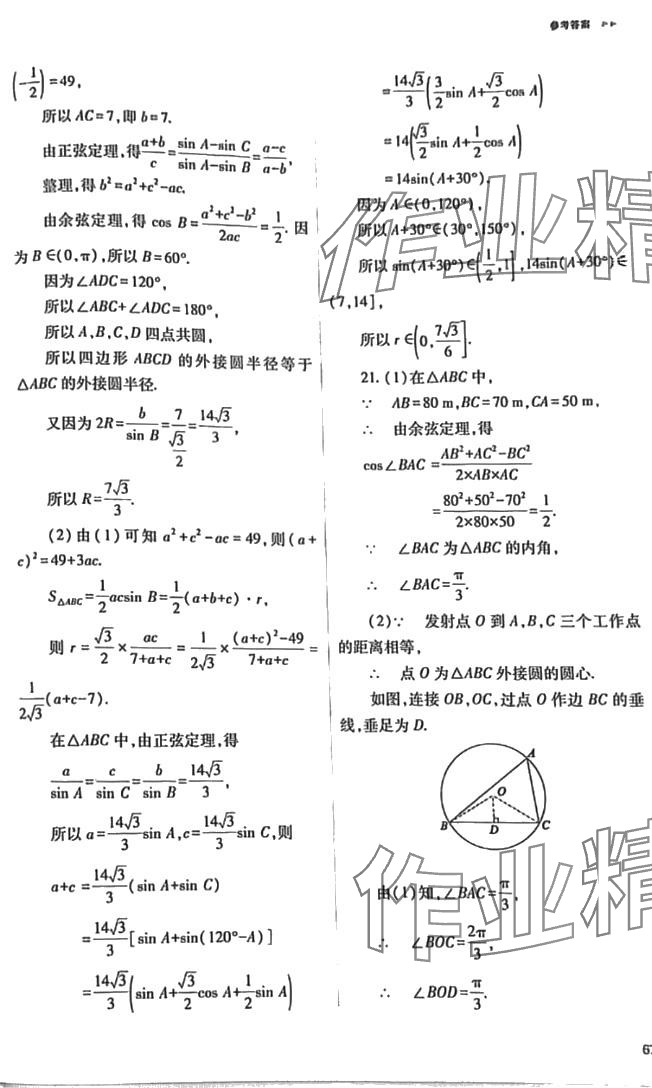 参考答案
(-1/2)=49,
所以 AC=7,即 b=7.
由正弦定理,得(a+b)/c=(sin A-sin C)/(sin A-sin B)=(a-c)/(a-b),
整理,得 b²=a²+c²-ac.
由余弦定理,得 cos B=(a²+c²-b²)/2ac=1/2. 因
为 B∈(0,π),所以 B=60°.
因为∠ADC=120°,
所以∠ABC+∠ADC=180°,
所以 A,B,C,D 四点共圆,
所以四边形 ABCD 的外接圆半径等于
△ABC 的外接圆半径.
又因为 2R=b/sin B=7/(√3/2)=14√3/3,
所以 R=7√3/3.
(2)由(1)可知 a²+c²-ac=49,则(a+
c)²=49+3ac.
S△ABC=1/2 acsin B=1/2(a+b+c)·r,
则 r=√3/2×ac/(7+a+c)=1/(2√3)×((a+c)²-49)/(7+a+c)=
1/(2√3)(a+c-7).
在△ABC 中,由正弦定理,得
a/sin A=c/sin C=b/sin B=14√3/3,
所以 a=14√3/3 sin A,c=14√3/3 sin C,则
a+c=14√3/3(sin A+sin C)
=14√3/3[sin A+sin(120°-A)]
=14√3/3(sin A+√3/2 cos A+1/2 sin A)
=14√3/3(3/2 sin A+√3/2 cos A)
=14(√3/2 sin A+1/2 cos A)
=14sin(A+30°),
因为 A∈(0,120°),
所以 A+30°∈(30°,150°),
所以 sin(A+30°)∈(1/2,1],14sin(A+30°)∈
(7,14],
所以 r∈(0,7√3/6].
21. (1)在△ABC 中,
∵ AB=80 m,BC=70 m,CA=50 m,
∴ 由余弦定理,得
cos∠BAC=(AB²+AC²-BC²)/(2×AB×AC)
=(80²+50²-70²)/(2×80×50)=1/2.
∵ ∠BAC 为△ABC 的内角,
∴ ∠BAC=π/3.
(2)∵ 发射点 O 到 A,B,C 三个工作点
的距离相等,
∴ 点 O 为△ABC 外接圆的圆心.
如图,连接 OB,OC,过点 O 作边 BC 的垂
线,垂足为 D.
A
O
B
D
C
由(1)知,∠BAC=π/3,
∴ ∠BOC=2π/3,
∴ ∠BOD=π/3.
作业精
作业精
67